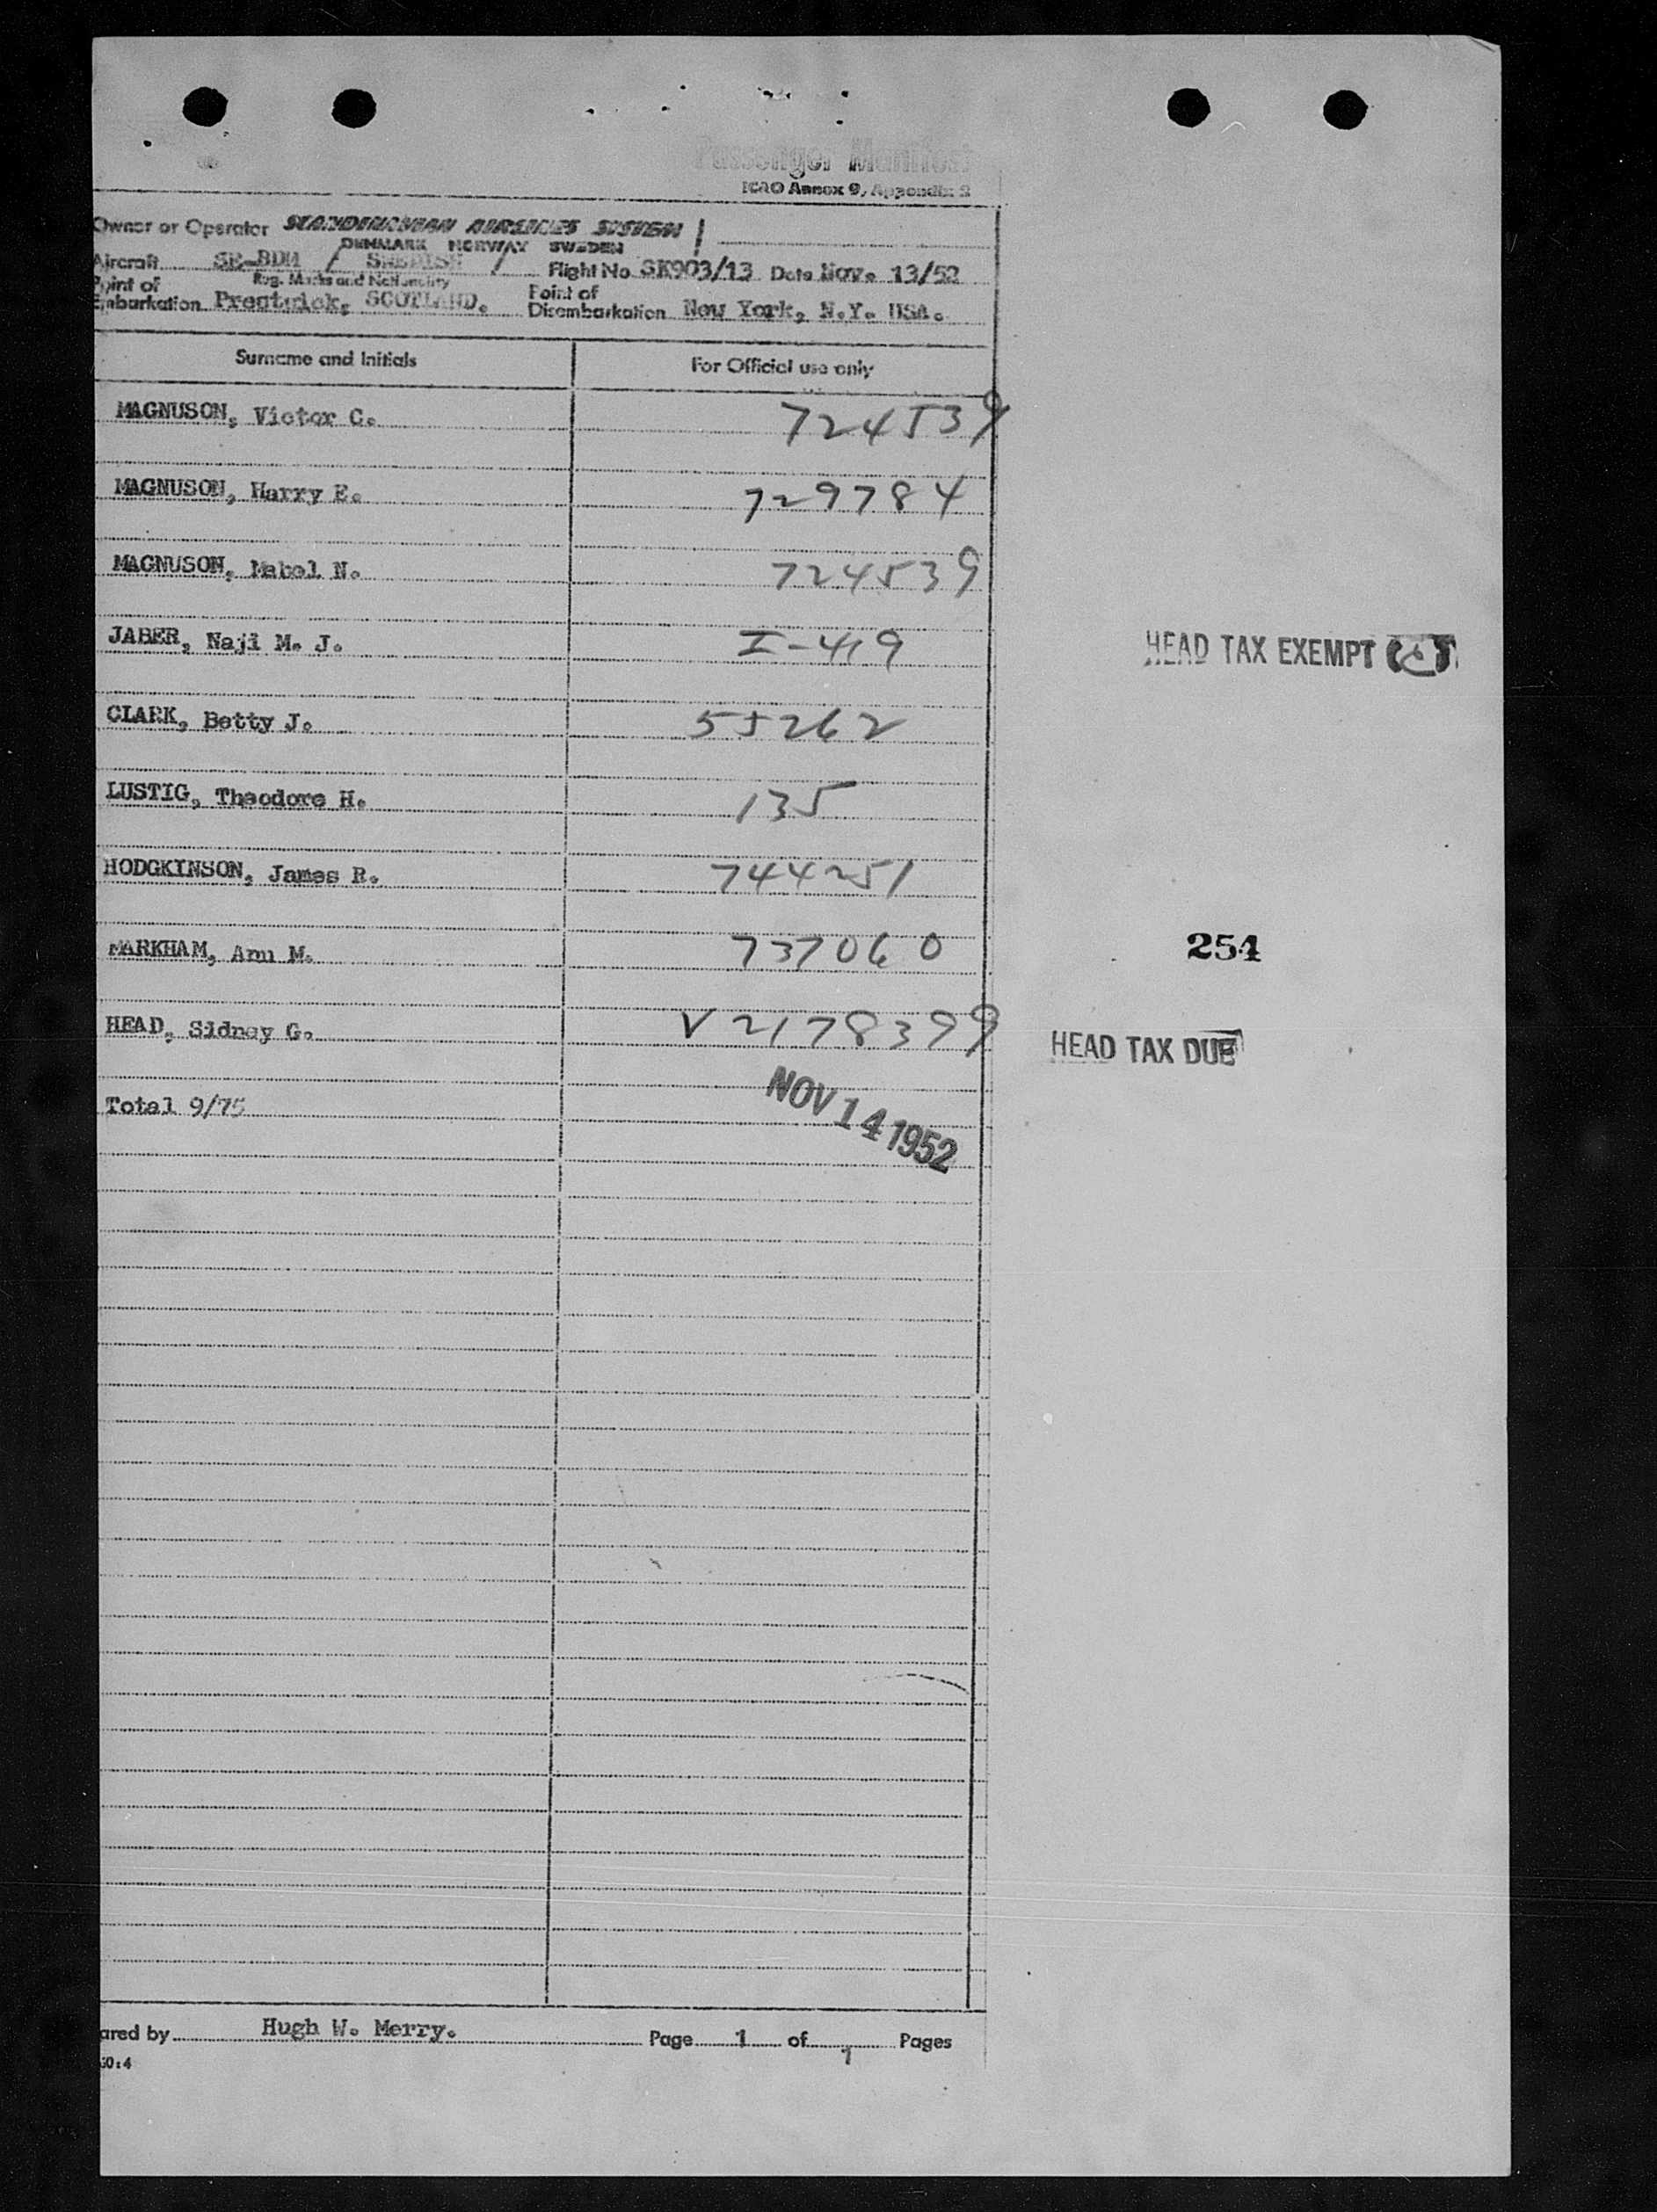 Passenger Manifest
ICAO Annex 9, Appendix 2
Owner or Operator SCANDINAVIAN AIRLINES SYSTEM
DENMARK NORWAY SWEDEN
Aircraft SE-BDM / SWEDISH / Flight No. SK903/13 Date Nov. 13/52
Reg. Marks and Nationality
Point of Embarkation Prestwick, SCOTLAND. Point of Disembarkation New York, N.Y. USA.
Surname and Initials For Official use only
MAGNUSON, Victor C. 724539
MAGNUSON, Harry E. 729784
MAGNUSON, Mabel N. 724539
JABER, Naji M. J. I-419 HEAD TAX EXEMPT
CLARK, Betty J. 55262
LUSTIG, Theodore H. 135
HODGKINSON, James R. 744251
MARKHAM, Ann M. 737060 254
HEAD, Sidney G. V2178399 HEAD TAX DUE
Total 9/75
NOV 14 1952
ared by Hugh W. Merry. Page 1 of 1 Pages
50:4